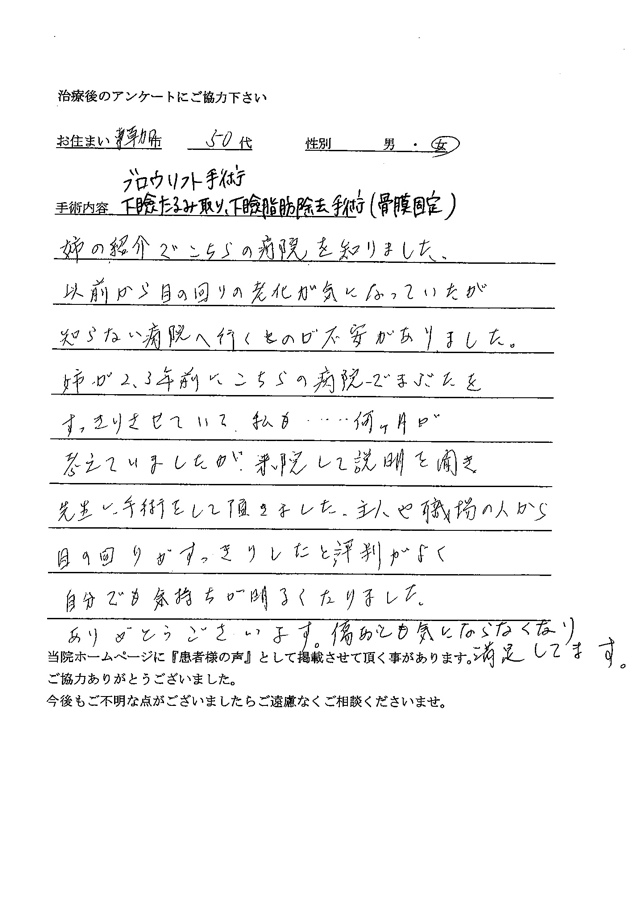 治療後のアンケートにご協力下さい
お住まい 草加市 50代 性別 男 ・ 女
ブロウリフト手術
手術内容 下瞼たるみ取り、下瞼脂肪除去手術(骨膜固定)
姉の紹介でこちらの病院を知りました、
以前から目の回りの老化が気になっていたが
知らない病院へ行くものが不安がありました。
姉が2、3年前にこちらの病院でまぶたを
すっきりさせていて、私も‥‥何ヶ月か
考えていましたが、来院して説明を聞き
先生に手術をして頂きました、主人や職場の人から
目の回りがすっきりしたと評判がよく
自分でも気持ちが明るくなりました。
ありがとうございます。傷あとも気にならなくなり
満足してます。
当院ホームページに『患者様の声』として掲載させて頂く事があります。
ご協力ありがとうございました。
今後もご不明な点がございましたらご遠慮なくご相談くださいませ。